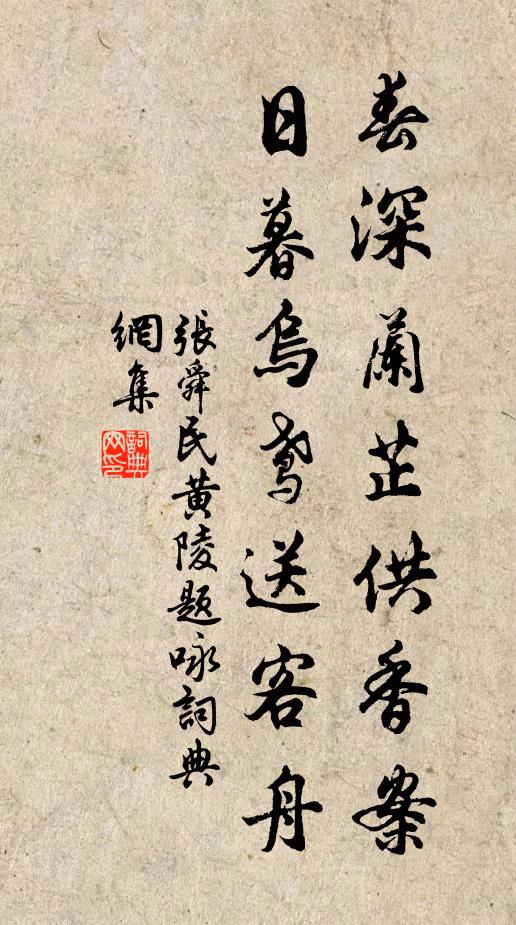 春深蘭芷供香案
日暮烏鳶送客舟
張舜民黄陵题咏詞典
網集
詞典
网印